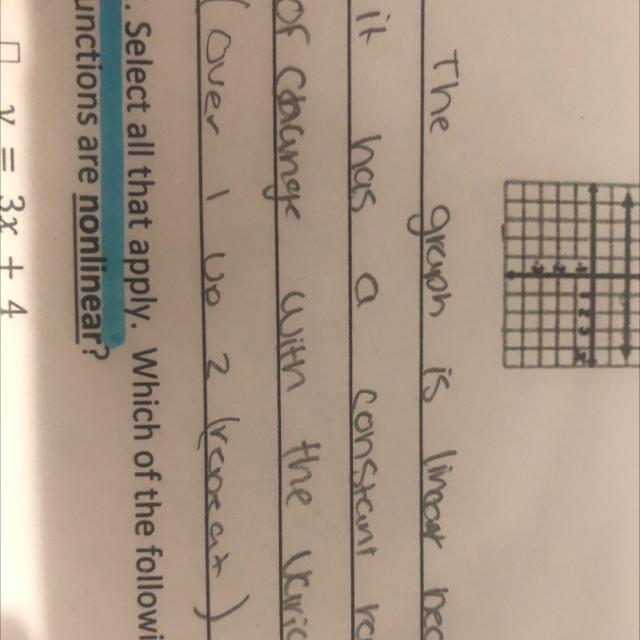 The graph is linear bec
it has a constant ra
of change with the
(Over 1 up 2 (repeat)
. Select all that apply. Which of the followi
unctions are nonlinear?
y = 3x + 4